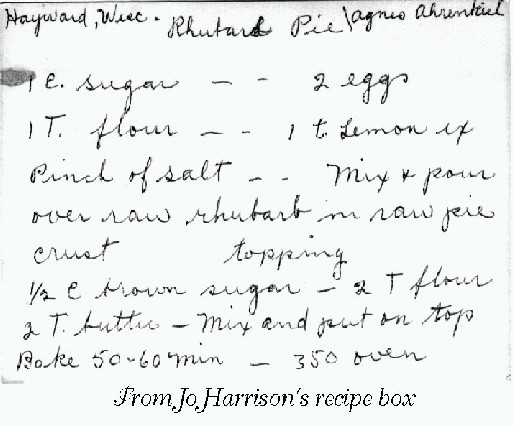 Hayward, Wisc. Rhubarb Pie \ Agnes Ahrenkiel
1 C. sugar - - 2 eggs
1 T. flour - - 1 t. Lemon ex
Pinch of salt - - Mix & pour
over raw rhubarb in raw pie
crust topping
1/2 C brown sugar - 2 T flour
2 T. butter - Mix and put on top
Bake 50-60 min - 350 oven
From Jo Harrison's recipe box